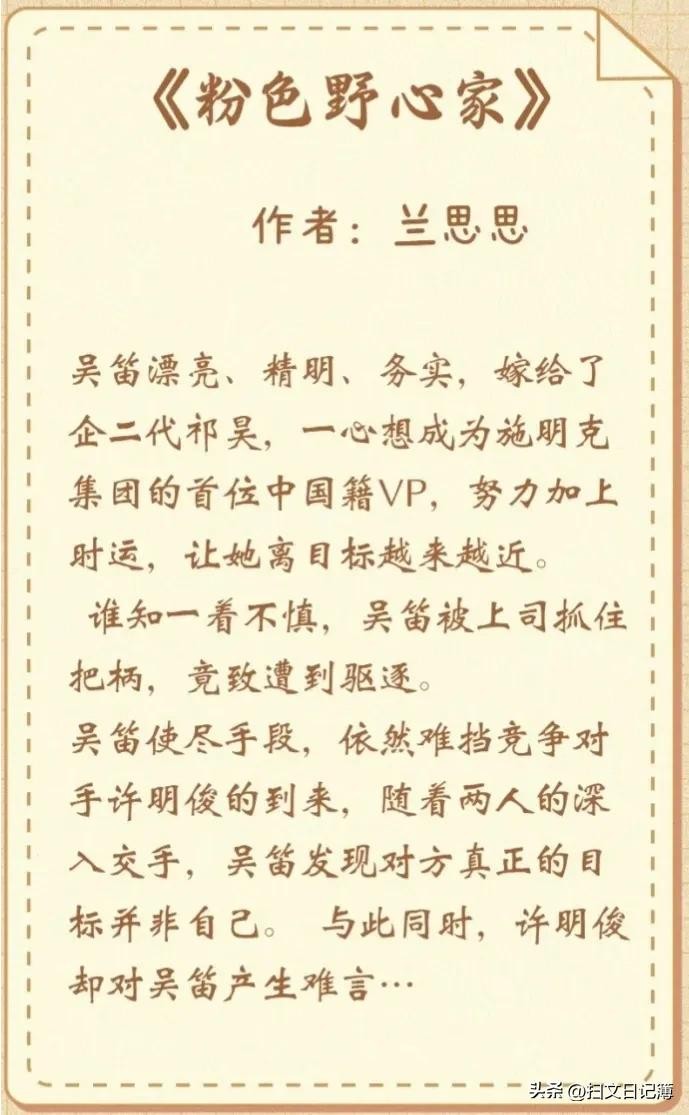 《粉色野心家》
作者：兰思思
吴笛漂亮、精明、务实，嫁给了
企二代祁昊，一心想成为施明克
集团的首位中国籍VP，努力加上
时运，让她离目标越来越近。
谁知一着不慎，吴笛被上司抓住
把柄，竟致遭到驱逐。
吴笛使尽手段，依然难挡竞争对
手许明俊的到来，随着两人的深
入交手，吴笛发现对方真正的目
标并非自己。 与此同时，许明俊
却对吴笛产生难言…
头条 @扫文日记簿